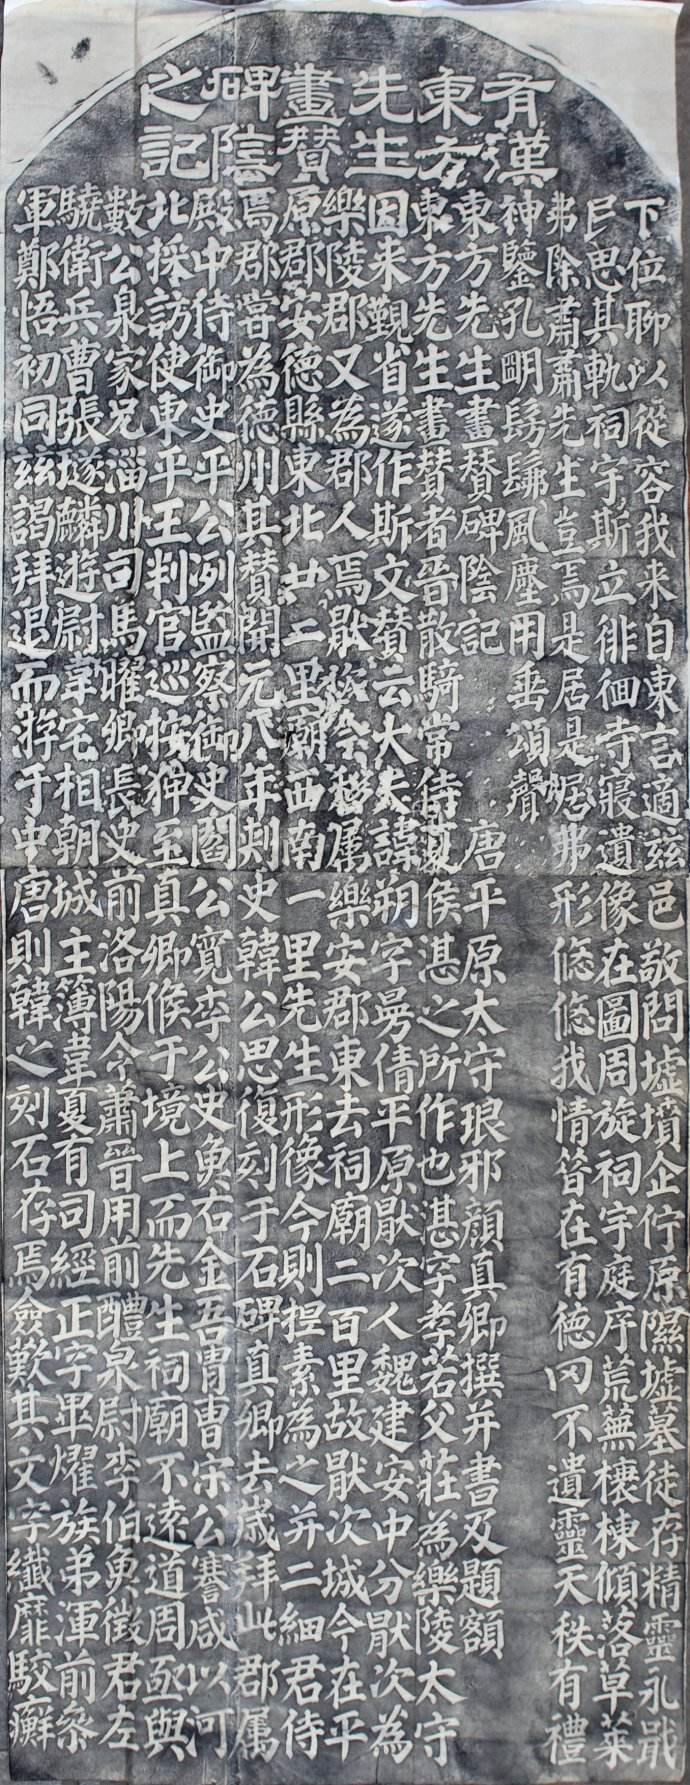 有漢
東方
先生
畫贊
碑陰
之記
下位聊以從容我来自東言適茲邑敬問墟墳企佇原隰墟墓徒存精靈永戢
民思其軌祠宇斯立徘徊寺寢遺像在圖周旋祠宇庭序荒蕪榱棟傾落草萊
弗除肅肅先生豈焉是居是居弗形悠悠我情昔在有德罔不遺靈天秩有禮
神鑒孔明髣髴風塵用垂頌聲
東方先生畫贊碑陰記 唐平原太守琅邪顏真卿撰并書及題額
東方先生畫贊者晉散騎常侍夏侯湛之所作也湛字孝若父莊為樂陵太守
因来覲省遂作斯文贊云大夫諱朔字曼倩平原厭次人魏建安中分厭次為
樂陵郡又為郡人焉厭次今移属樂安郡東去祠廟二百里故厭次城今在平
原郡安德縣東北廿二里廟西南一里先生形像今則捏素為之并二細君侍
焉郡嘗為德州其贊開元八年刺史韓公思復刻于石碑真卿去歲拜此郡属
殿中侍御史平公冽監察御史閻公寬李公史魚右金吾胄曹宋公謇咸以河
北採訪使東平王判官巡按狎至真卿候于境上而先生祠廟不遠道周亟與
數公泉家兄淄川司馬曜卿長史前洛陽令蕭晉用前醴泉尉李伯魚徵君左
驍衛兵曹張璲麟遊尉韋宅相朝城主簿韋夏有司經正字畢燿族弟渾前參
軍鄭悟初同茲謁拜退而遊于中唐則韓之刻石存焉僉歎其文字纖靡駮癬